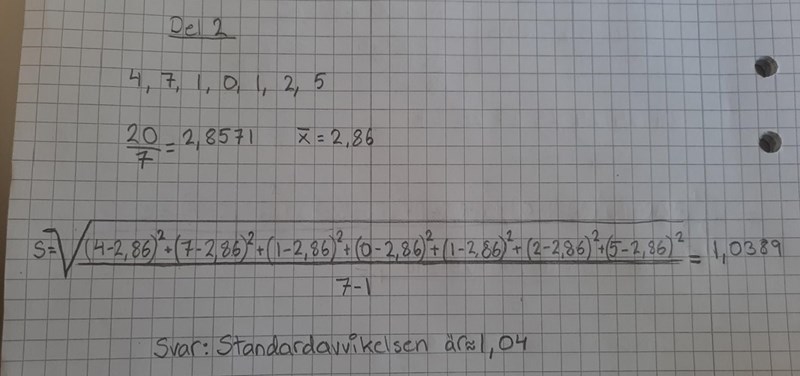 Del 2
4, 7, 1, 0, 1, 2, 5
20/7 = 2,8571 x̄ = 2,86
S = √((4-2,86)²+(7-2,86)²+(1-2,86)²+(0-2,86)²+(1-2,86)²+(2-2,86)²+(5-2,86)²/7-1) = 1,0389
Svar: Standardavvikelsen är ≈ 1,04